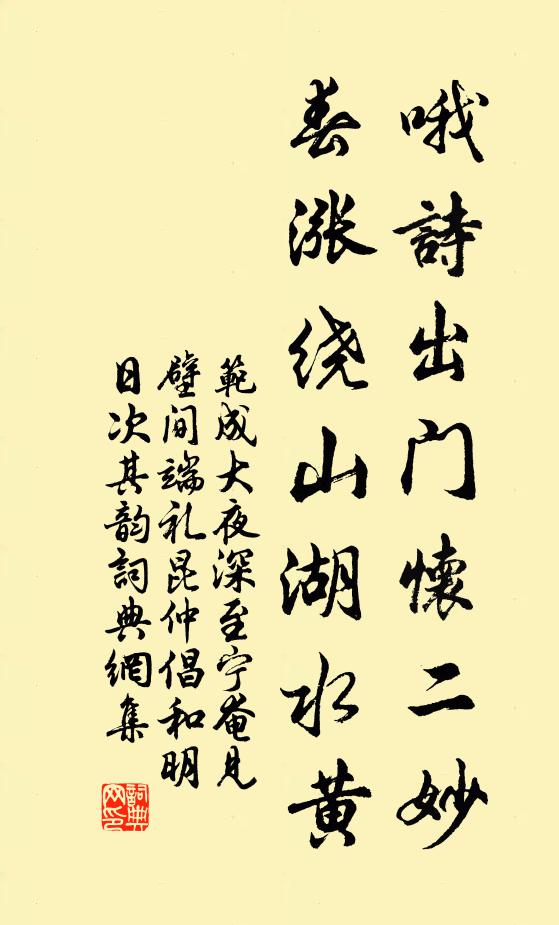 哦詩出门懷二妙
春漲绕山湖水黄
範成大夜深至宁菴見
壁间端礼昆仲倡和明
日次其韵詞典網集
詞典
网印